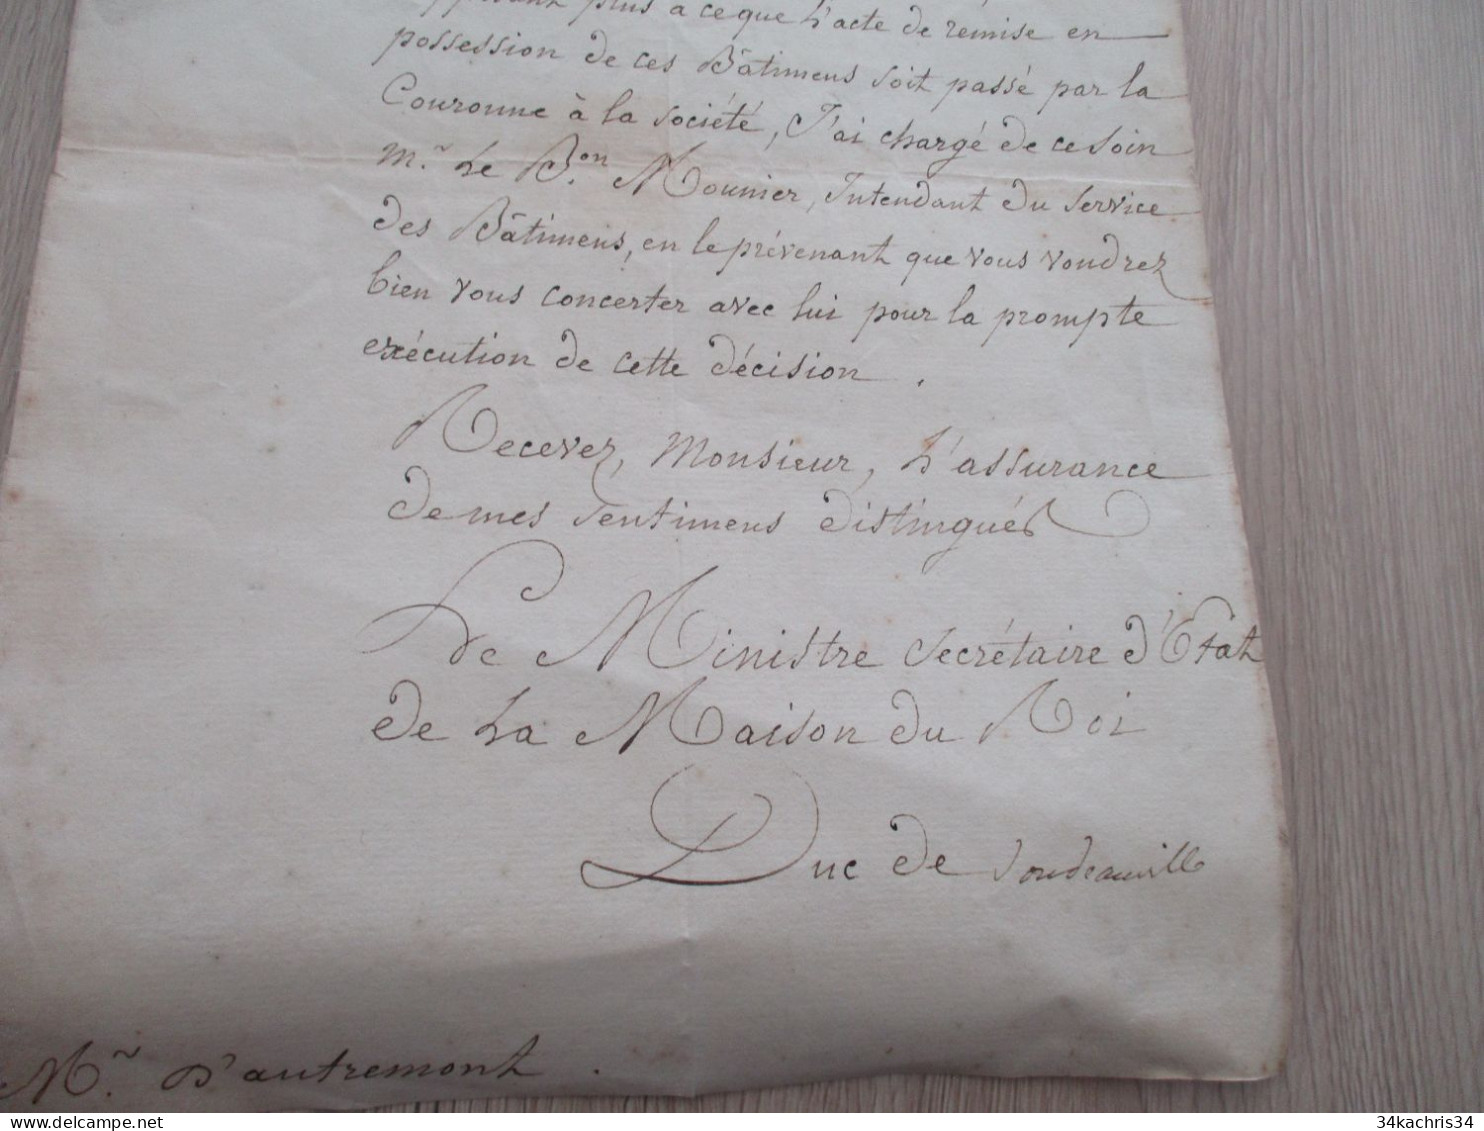 plus à ce que L'acte de remise en
possession de ces Bâtimens soit passé par la
Couronne à la société, J'ai chargé de ce soin
Mr. Le Bon. Mounier, Intendant du service
des Bâtimens, en le prévenant que vous voudrez
bien vous concerter avec lui pour la prompte
exécution de cette décision.
Recevez, Monsieur, L'assurance
de mes sentimens distingués
Le Ministre secrétaire d'Etat
de La Maison du Roi
Duc de Doudeauville
Mr. D'autremont.
delcampe.net
34kachris34